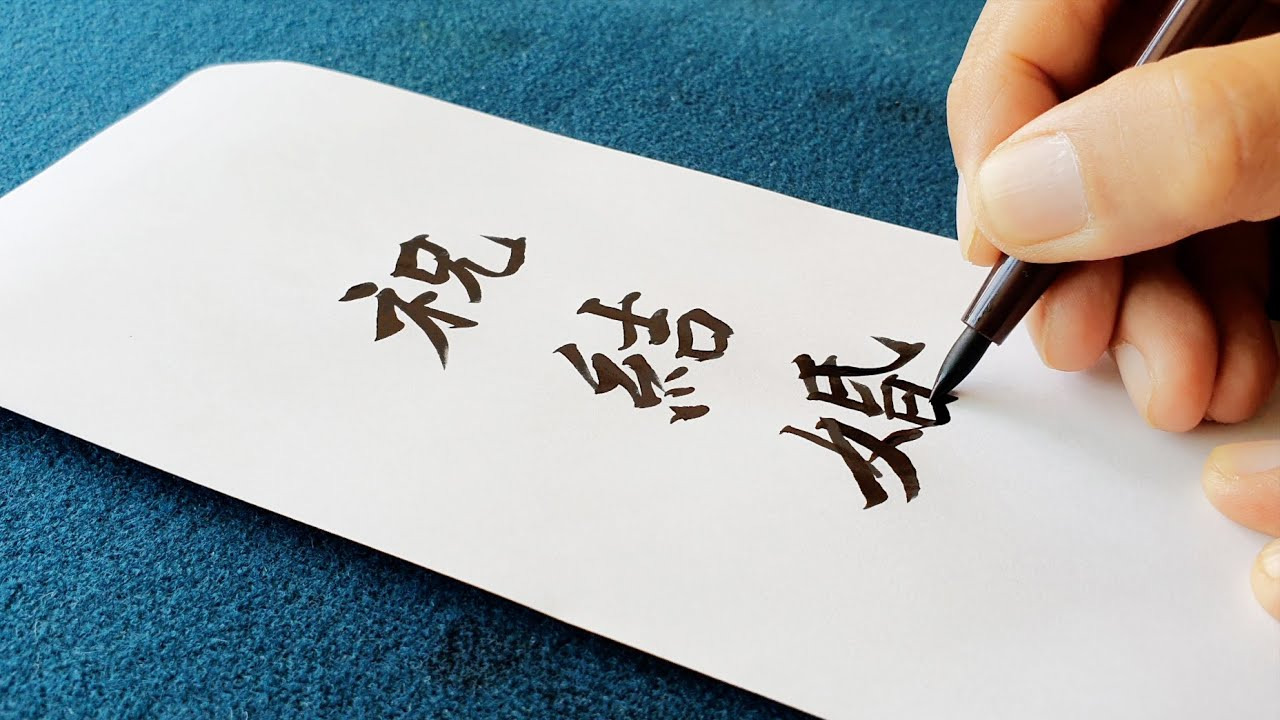 祝結婚